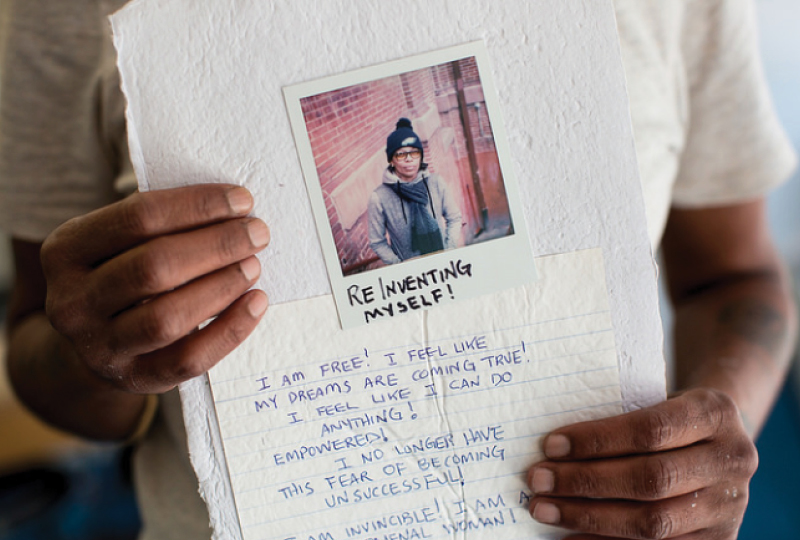 RE INVENTING
MYSELF!
I AM FREE! I FEEL LIKE
MY DREAMS ARE COMING TRUE!
I FEEL LIKE I CAN DO
ANYTHING!
EMPOWERED!
I NO LONGER HAVE
THIS FEAR OF BECOMING
UNSUCCESSFUL!
I AM INVINCIBLE! I AM A
WOMAN!